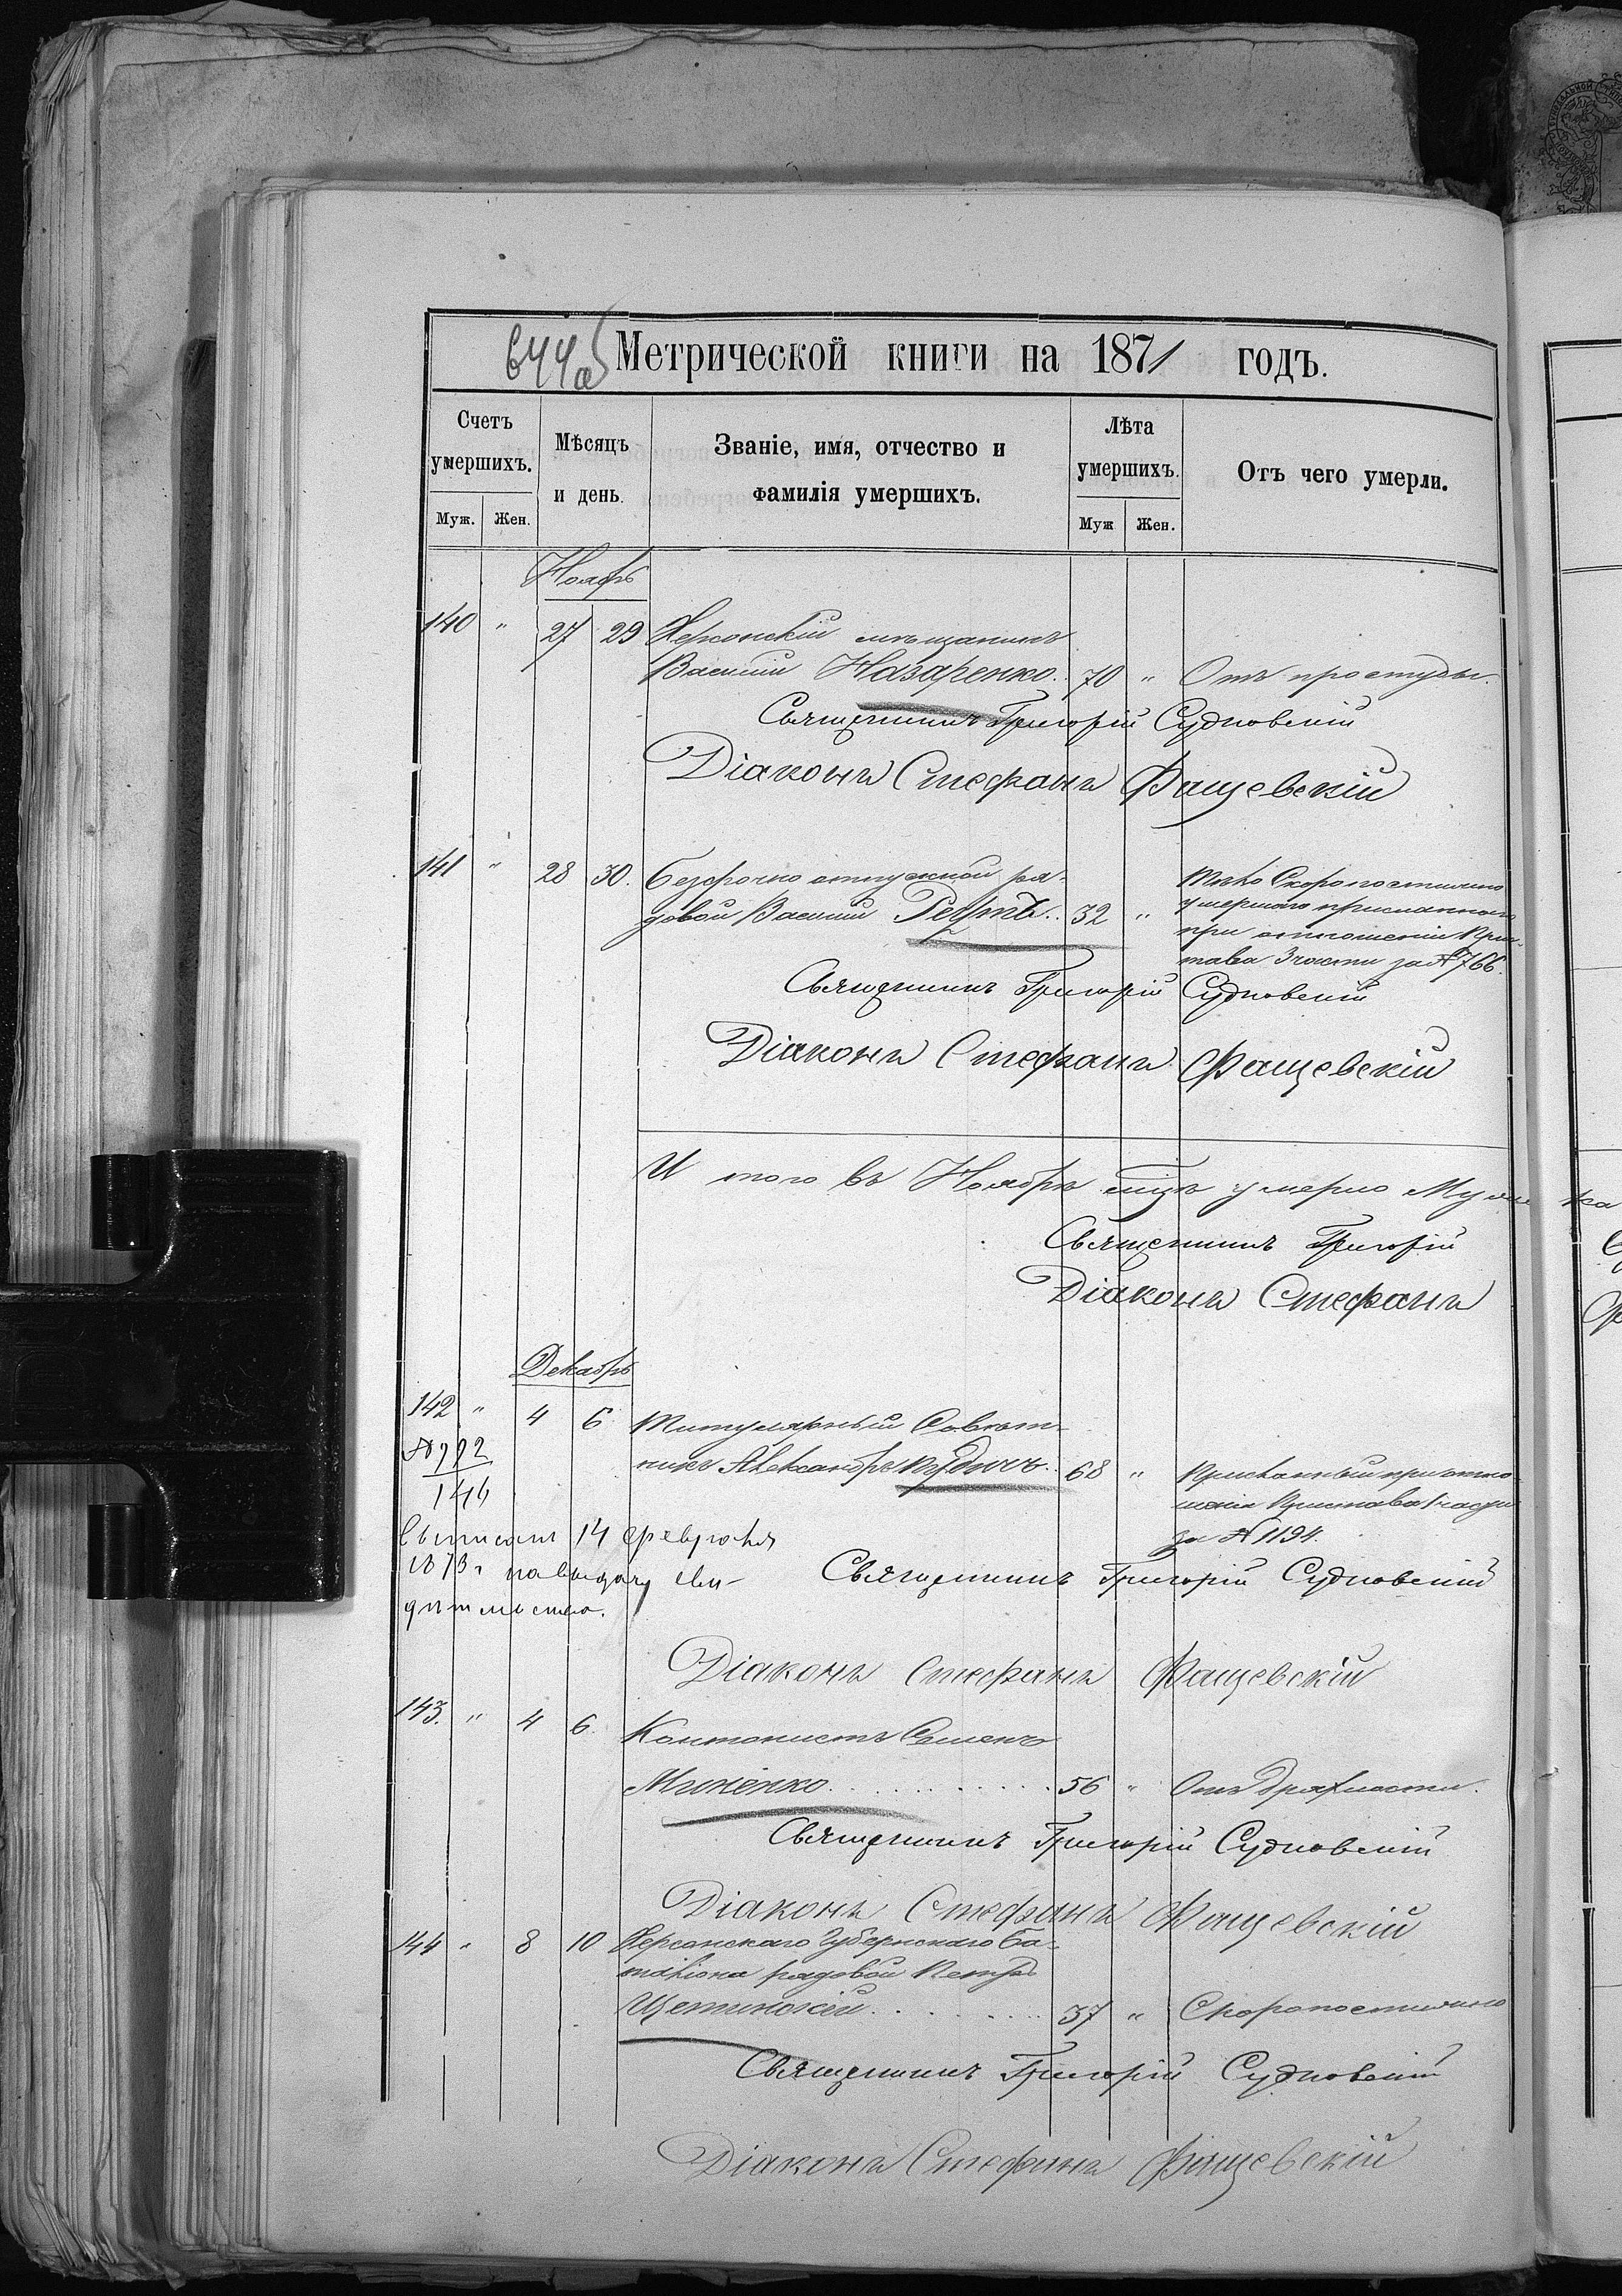 644 об
Метрической книги на 1871 годъ.
Счетъ умершихъ.
Мѣсяцъ и день.
Званіе, имя, отчество и фамилія умершихъ.
Лѣта умершихъ.
Отъ чего умерли.
Муж. Жен.
Муж Жен.
Ноябрь
140 " 27 29 Херсонскій мѣщанинъ
Василій Назаренко. 70 " Отъ простуды.
Священникъ Григорій Судковскій
Діаконъ Стефанъ Фащевскій
141 " 28 30. Безсрочно отпускной ря-
довой Василій 32 "
Тѣло Скоропостижно
умершаго присланнаго
при отношеніи При-
става 3 части за № 766.
Священникъ Григорій Судковскій
Діаконъ Стефанъ Фащевскій
И того въ Ноябрѣ умерло Муже
Священникъ Григорій
Діаконъ Стефанъ
Декабрь
142 " 4 6 Титулярный Совѣт-
никъ Александръ 68 " Присланный при отно-
шеніи Пристава 1 части
за № 1194.
№ 992
144
Выписанъ 14 февраля
1873 г на выдачу сви-
дѣтельства.
Священникъ Григорій Судковскій
Діаконъ Стефанъ Фащевскій
143. " 4 6. Кантонистъ Семенъ
Миненко. 56 " Отъ дряхлости.
Священникъ Григорій Судковскій
Діаконъ Стефанъ Фащевскій
144 " 8 10 Херсонскаго Губернскаго Ба-
таліона рядовой Петръ
Щетинскій. 37 " Скоропостижно
Священникъ Григорій Судковскій
Діаконъ Стефанъ Фащевскій